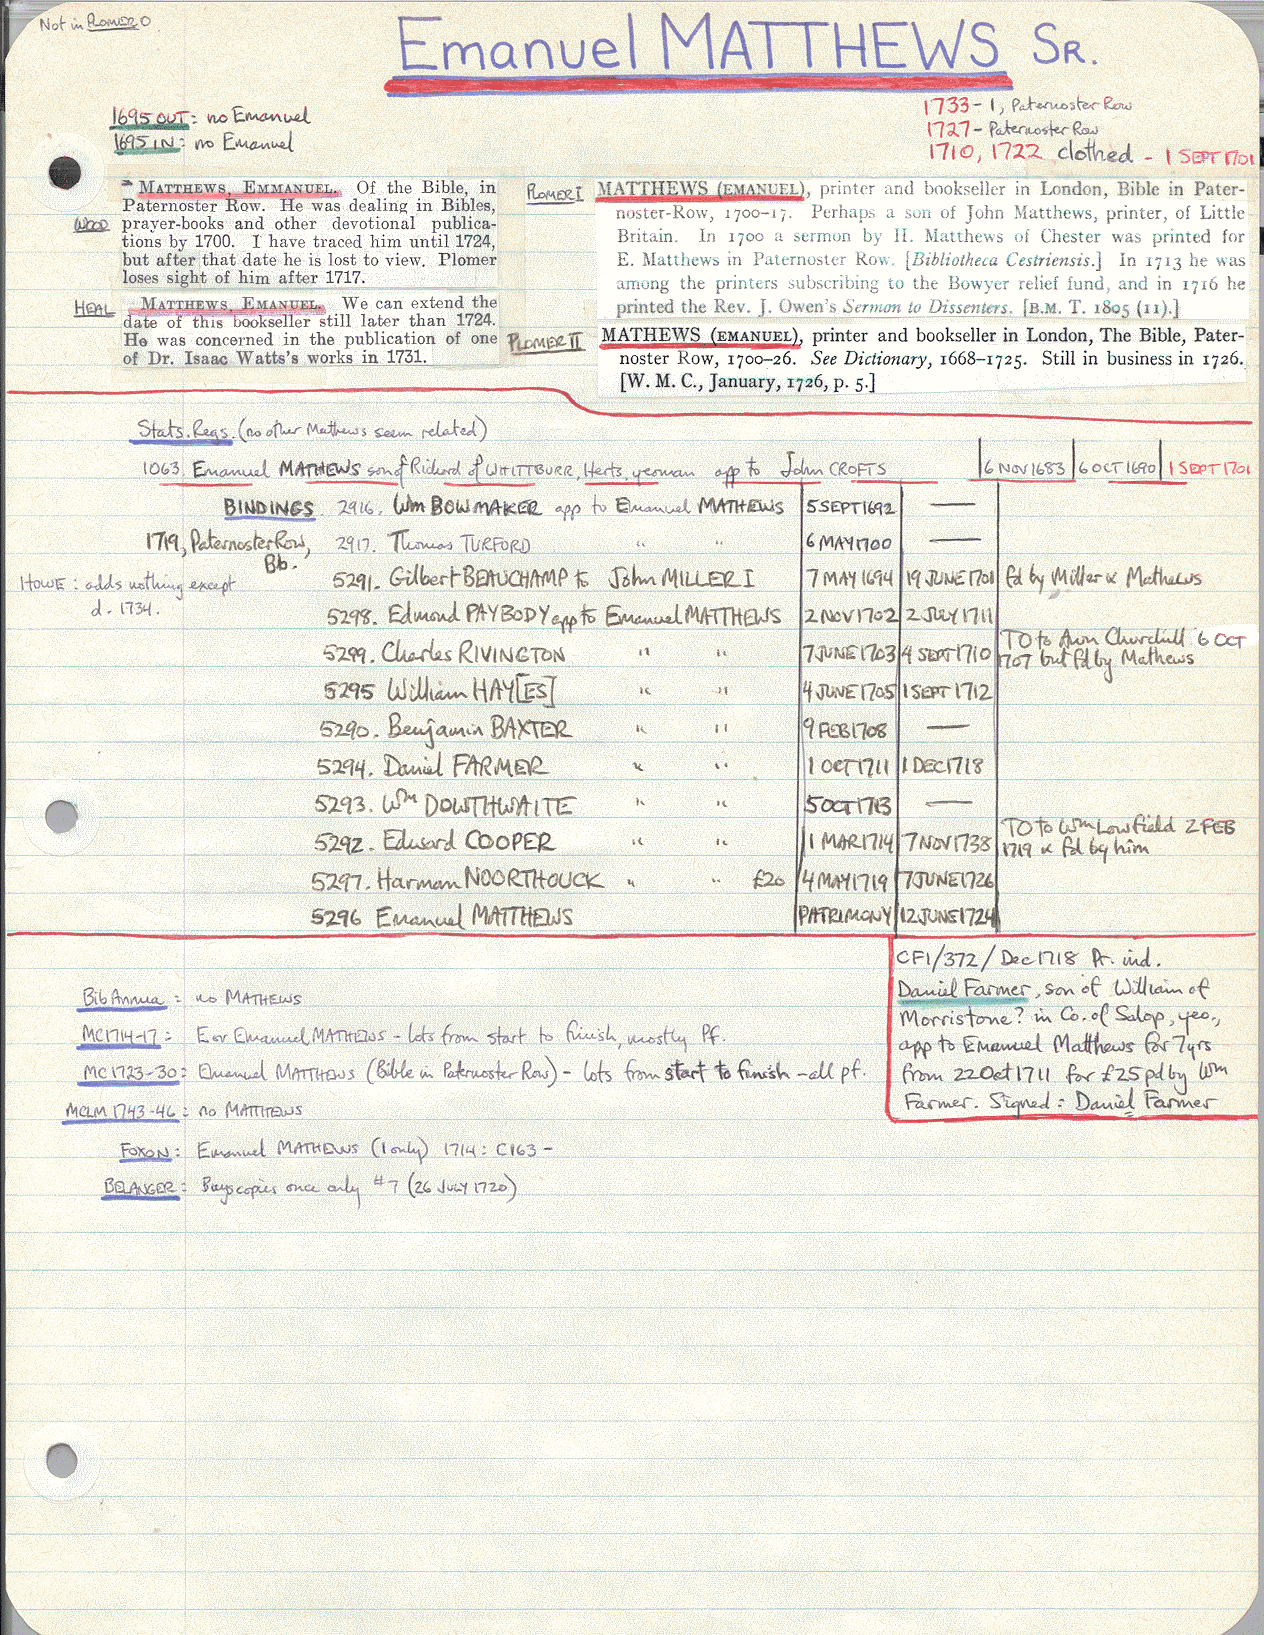 Not in PLOMER O
Emanuel MATTHEWS SR.
1695 OUT: no Emanuel
1695 IN: no Emanuel
1733 - 1, Paternoster Row
1727 - Paternoster Row
1710, 1722 clothed - 1 SEPT 1701
WOOD
MATTHEWS, EMMANUEL. Of the Bible, in
Paternoster Row. He was dealing in Bibles,
prayer-books and other devotional publica-
tions by 1700. I have traced him until 1724,
but after that date he is lost to view. Plomer
loses sight of him after 1717.
HEAL
MATTHEWS, EMANUEL. We can extend the
date of this bookseller still later than 1724.
He was concerned in the publication of one
of Dr. Isaac Watts's works in 1731.
PLOMER I
MATTHEWS (EMANUEL), printer and bookseller in London, Bible in Pater-
noster-Row, 1700-17. Perhaps a son of John Matthews, printer, of Little
Britain. In 1700 a sermon by H. Matthews of Chester was printed for
E. Matthews in Paternoster Row. [Bibliotheca Cestriensis.] In 1713 he was
among the printers subscribing to the Bowyer relief fund, and in 1716 he
printed the Rev. J. Owen's Sermon to Dissenters. [B.M. T. 1805 (11).]
PLOMER II
MATHEWS (EMANUEL), printer and bookseller in London, The Bible, Pater-
noster Row, 1700–26. See Dictionary, 1668–1725. Still in business in 1726.
[W. M. C., January, 1726, p. 5.]
Stats. Regs. (no other Mathews seem related)
1063. Emanuel MATHEWS son of Richard of WHITTBURR, Herts, yeoman app to John CROFTS 6 NOV 1683 6 OCT 1690 1 SEPT 1701
BINDINGS 2916. Wm BOWMAKER app to Emanuel MATHEWS 5 SEPT 1692 —
1719, Paternoster Row, Bb.
2917. Thomas TURFORD " " 6 MAY 1700 —
HOWE: adds nothing except
d. 1734.
5291. Gilbert BEAUCHAMP to John MILLER I 7 MAY 1694 19 JUNE 1701 fd by Miller & Mathews
5298. Edmond PAYBODY app to Emanuel MATTHEWS 2 NOV 1702 2 JULY 1711
5299. Charles RIVINGTON " " 7 JUNE 1703 4 SEPT 1710 TO to Awn Churchill 6 OCT
1707 but fd by Mathews
5295 William HAY[ES] " " 4 JUNE 1705 1 SEPT 1712
5290. Benjamin BAXTER " " 9 FEB 1708 —
5294. Daniel FARMER " " 1 OCT 1711 1 DEC 1718
5293. Wm DOWTHWAITE " " 5 OCT 1713 —
5292. Edward COOPER " " 1 MAR 1714 7 NOV 1738 TO to Wm Lowfield 2 FEB
1719 & fd by him
5297. Harman NOORTHOUCK " " £20 4 MAY 1719 7 JUNE 1726
5296 Emanuel MATTHEWS PATRIMONY 12 JUNE 1724
CF1/372/Dec 1718 Pr. ind.
Daniel Farmer, son of William of
Morristone? in Co. of Salop, yeo.,
app to Emanuel Matthews for 7 yrs
from 22 Oct 1711 for £25 pd by Wm
Farmer. Signed: Daniel Farmer
Bib Annua: no MATHEWS
MC 1714-17: E or Emanuel MATHEWS - lots from start to finish, mostly Pf.
MC 1723-30: Emanuel MATTHEWS (Bible in Paternoster Row) - lots from start to finish - all pf.
MCLM 1743-46: no MATTHEWS
FOXON: Emanuel MATHEWS (1 only) 1714: C163 -
BELANGER: Buys copies once only #7 (26 JULY 1720)